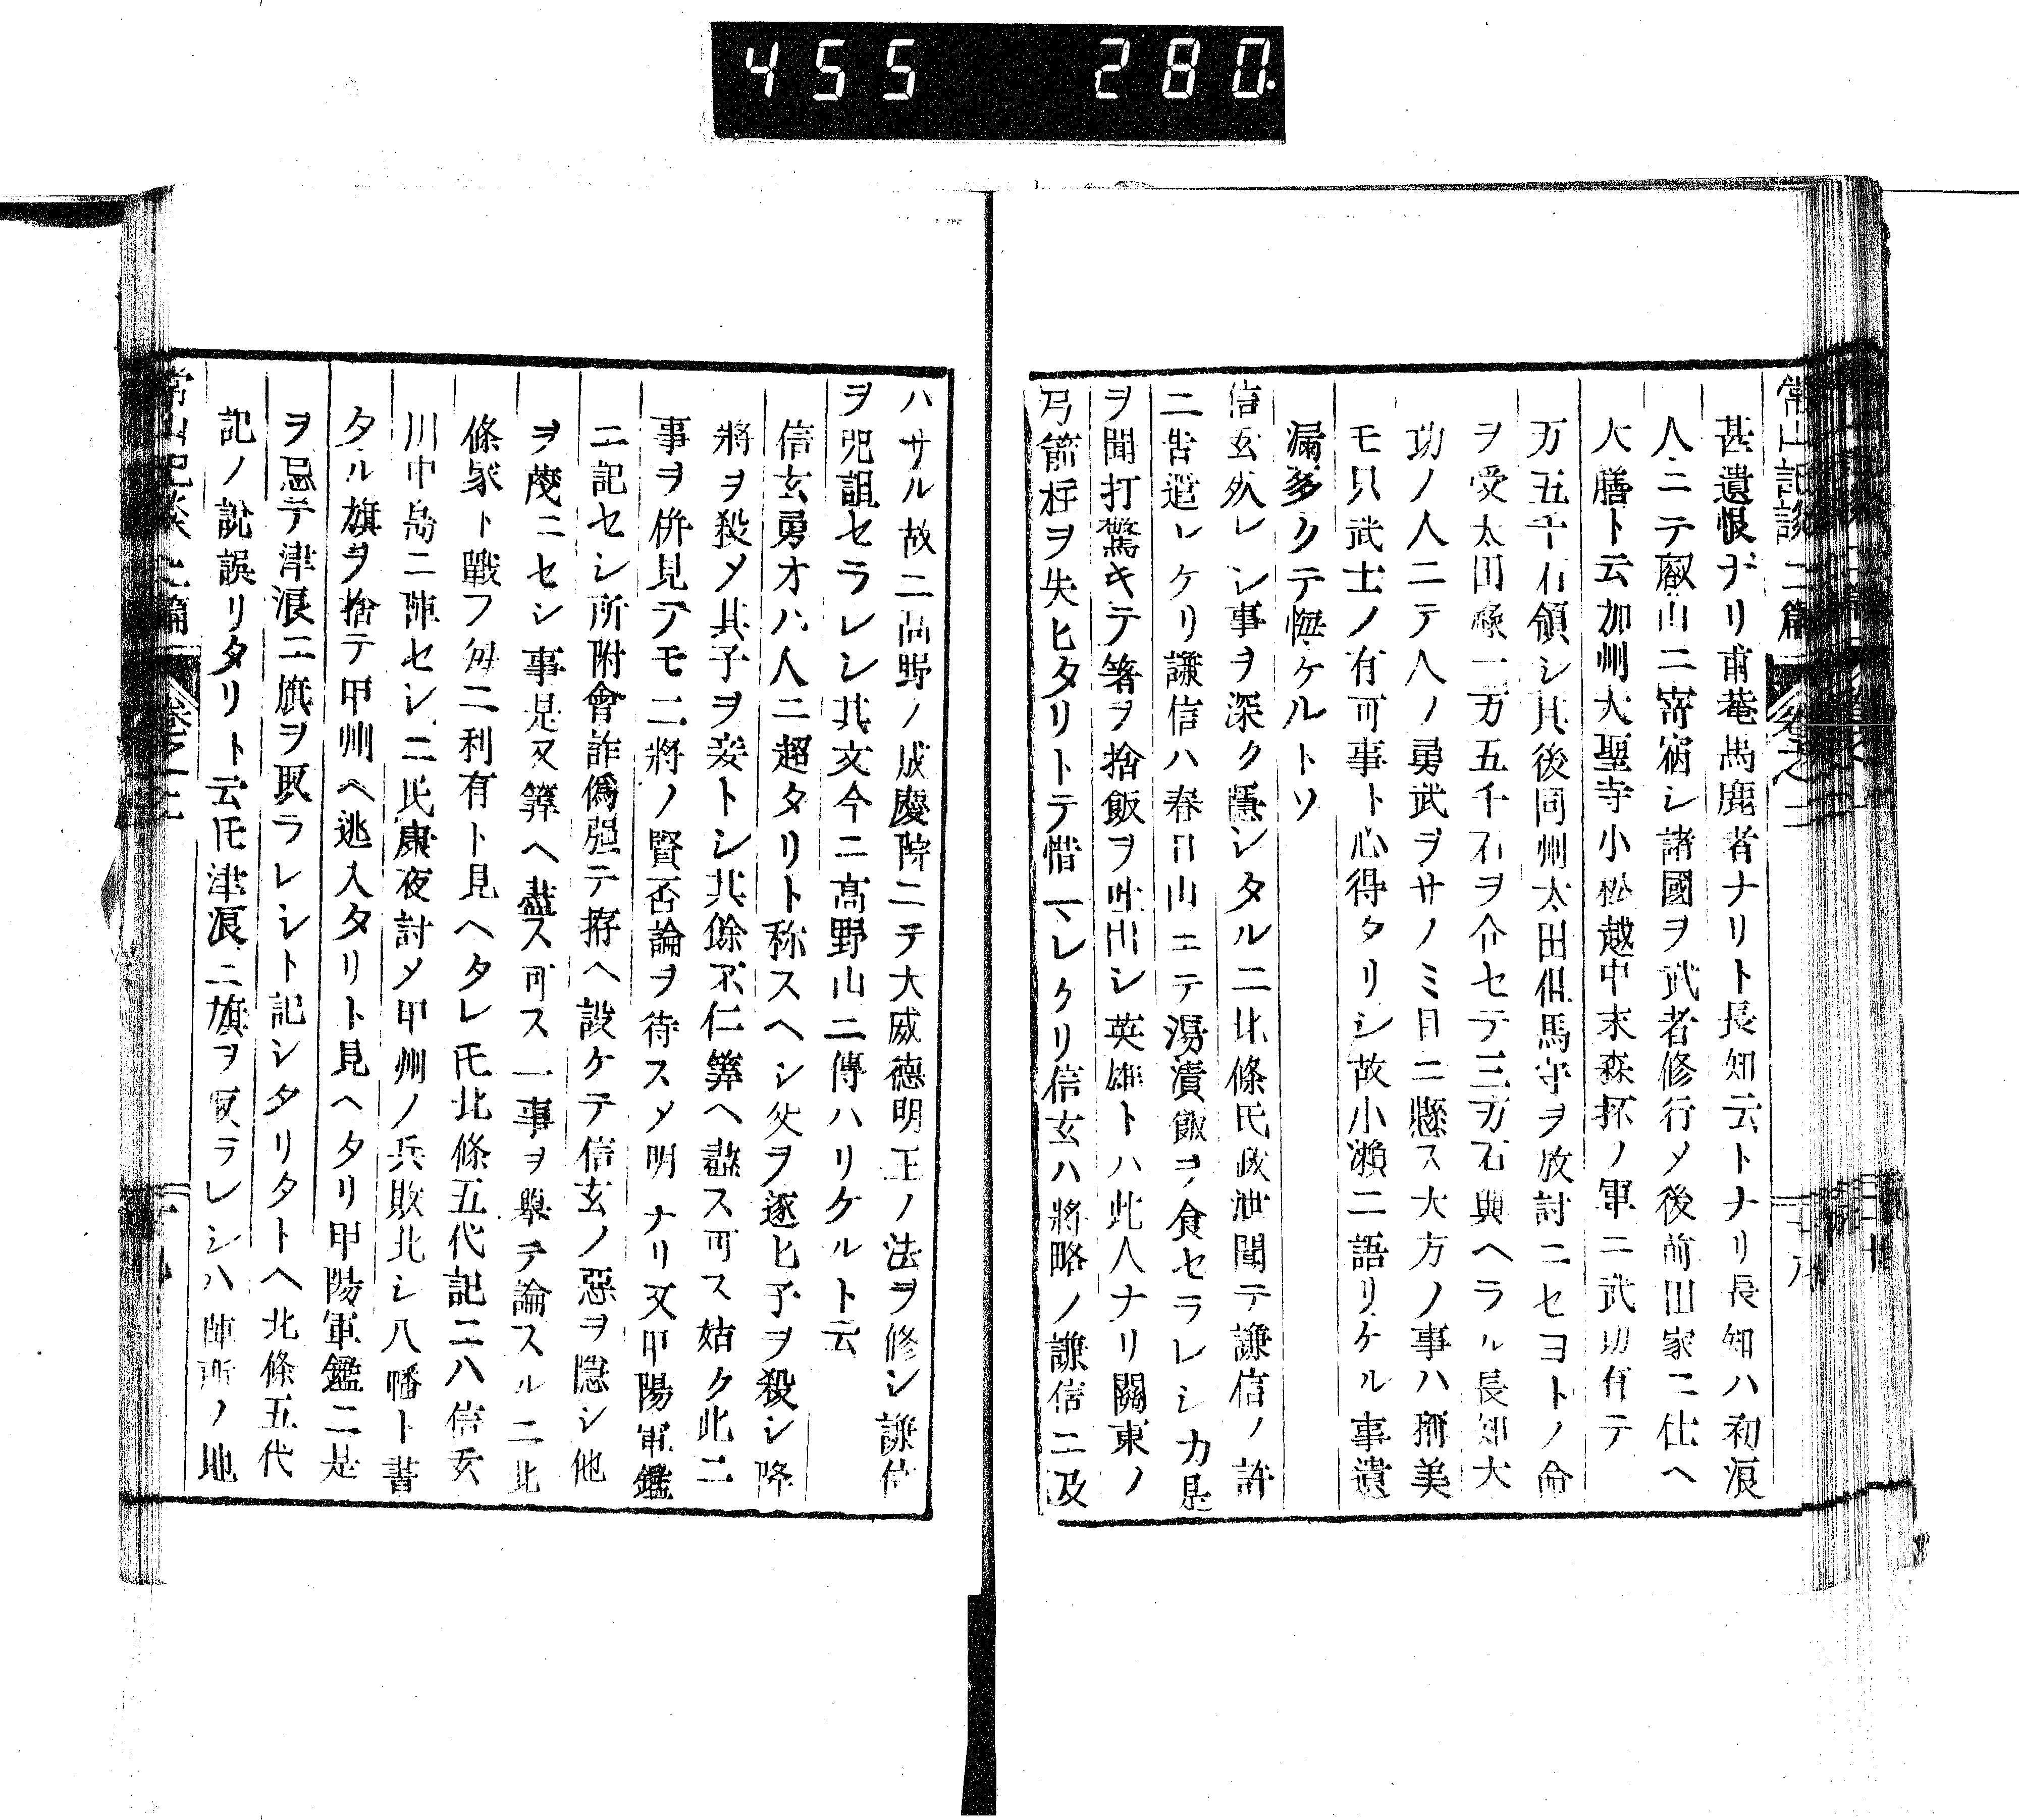 455 280.
常山記談 二篇 卷之二
甚遺恨ナリ甫菴馬鹿者ナリト長知云トナリ長知ハ初浪
人ニテ叡山ニ寄宿シ諸國ヲ武者修行メ後前田家ニ仕ヘ
大膳ト云加州大聖寺小松越中末森抔ノ軍ニ武功有テ
万五千石領シ其後同州太田但馬守ヲ放討ニセヨトノ命
ヲ受太田祿一万五千石ヲ合セテ三万石與ヘラル長知大
功ノ人ニテ人ノ勇武ヲサノミ目ニ懸ス大方ノ事ハ稱美
モ只武士ノ有可事ト心得タリシ故小瀬ニ語リケル事遺
漏多クテ悔ケルトソ
信玄死レシ事ヲ深ク隱シタルニ北條氏政泄聞テ謙信ノ許
ニ告遣レケリ謙信ハ春日山ニテ湯漬飯ヲ食セラレシカ是
ヲ聞打驚キテ箸ヲ捨飯ヲ吐出シ英雄トハ此人ナリ關東ノ
弓箭柱ヲ失ヒタリトテ惜マレケリ信玄ハ將略ノ謙信ニ及
ハサル故ニ高野ノ成慶院ニテ大威德明王ノ法ヲ修シ謙信
ヲ呪詛セラレシ其文今ニ高野山ニ傳ハリケルト云
信玄勇才ハ人ニ超タリト称スヘシ父ヲ逐ヒ子ヲ殺シ降
將ヲ殺メ其子ヲ妾トシ其餘不仁算ヘ盡ス可ス姑ク此二
事ヲ倂見テモ二將ノ賢否論ヲ待スメ明ナリ又甲陽軍鑑
ニ記セシ所附會詐僞强テ拵ヘ設ケテ信玄ノ惡ヲ隠シ他
ヲ蔑ニセシ事是又算ヘ盡ス可ス一事ヲ舉テ論スルニ北
條家ト戰フ每ニ利有ト見ヘタレ𪜈北條五代記ニハ信玄
川中島ニ陣セシニ氏康夜討メ甲州ノ兵敗北シ八幡ト書
タル旗ヲ捨テ甲州ヘ逃入タリト見ヘタリ甲陽軍鑑ニ是
ヲ忌テ津浪ニ旗ヲ取ラレシト記シタリタトヘ北條五代
記ノ說誤リタリト云𪜈津浪ニ旗ヲ取ラレシハ陣所ノ地
常山記談 二篇 卷之二